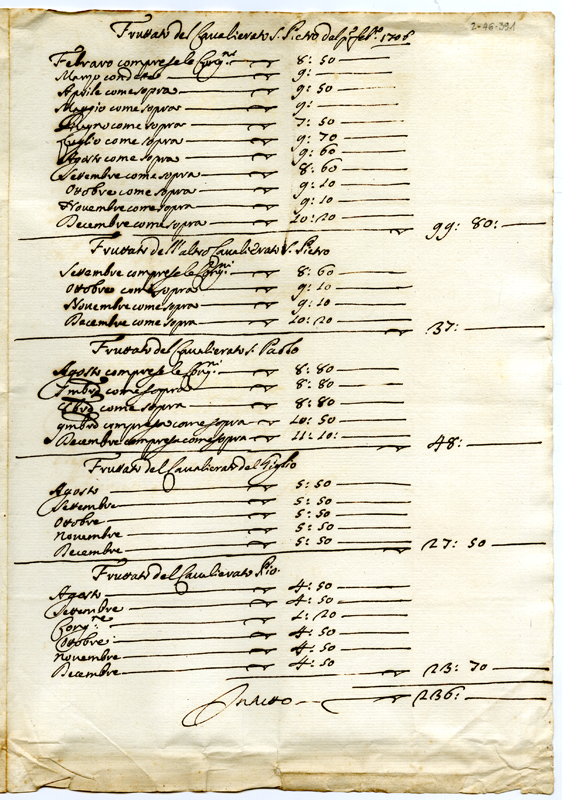 2-96-291
Fruttato del Cavalierato S. Pietro dal p.º feb.º 1706
Febraro comprese le Prop.ni 8: 50
Marzo con detto 9:
Aprile come sopra 9: 50
Maggio come sopra 9:
Giugno come sopra 7: 50
Luglio come sopra 9: 70
Agosto come sopra 9: 60
Settembre come sopra 8: 60
Ottobre come sopra 9: 10
Novembre come sopra 9: 10
Decembre come sopra 10: 20
99: 80:
Fruttato dell'altro Cavalierato S. Pietro
Settembre comprese le Prop.ni 8: 60
Ottobre come sopra 9: 10
Novembre come sopra 9: 10
Decembre come sopra 10: 20
37:
Fruttato del Cavalierato S. Paolo
Agosto comprese le Prop.ni 8: 80
7mbre come sopra 8: 80
8bre come sopra 8: 80
9mbre comprese come sopra 10: 50
Decembre comprese come sopra 11: 10:
48:
Fruttato del Cavalierato del Giglio
Agosto 5: 50
Settembre 5: 50
Ottobre 5: 50
Novembre 5: 50
Decembre 5: 50
27: 50
Fruttato del Cavalierato Pio
Agosto 4: 50
Settembre 4: 50
1: 20
Ottobre 4: 50
Novembre 4: 50
Decembre 4: 50
23: 70
In tutto 236: